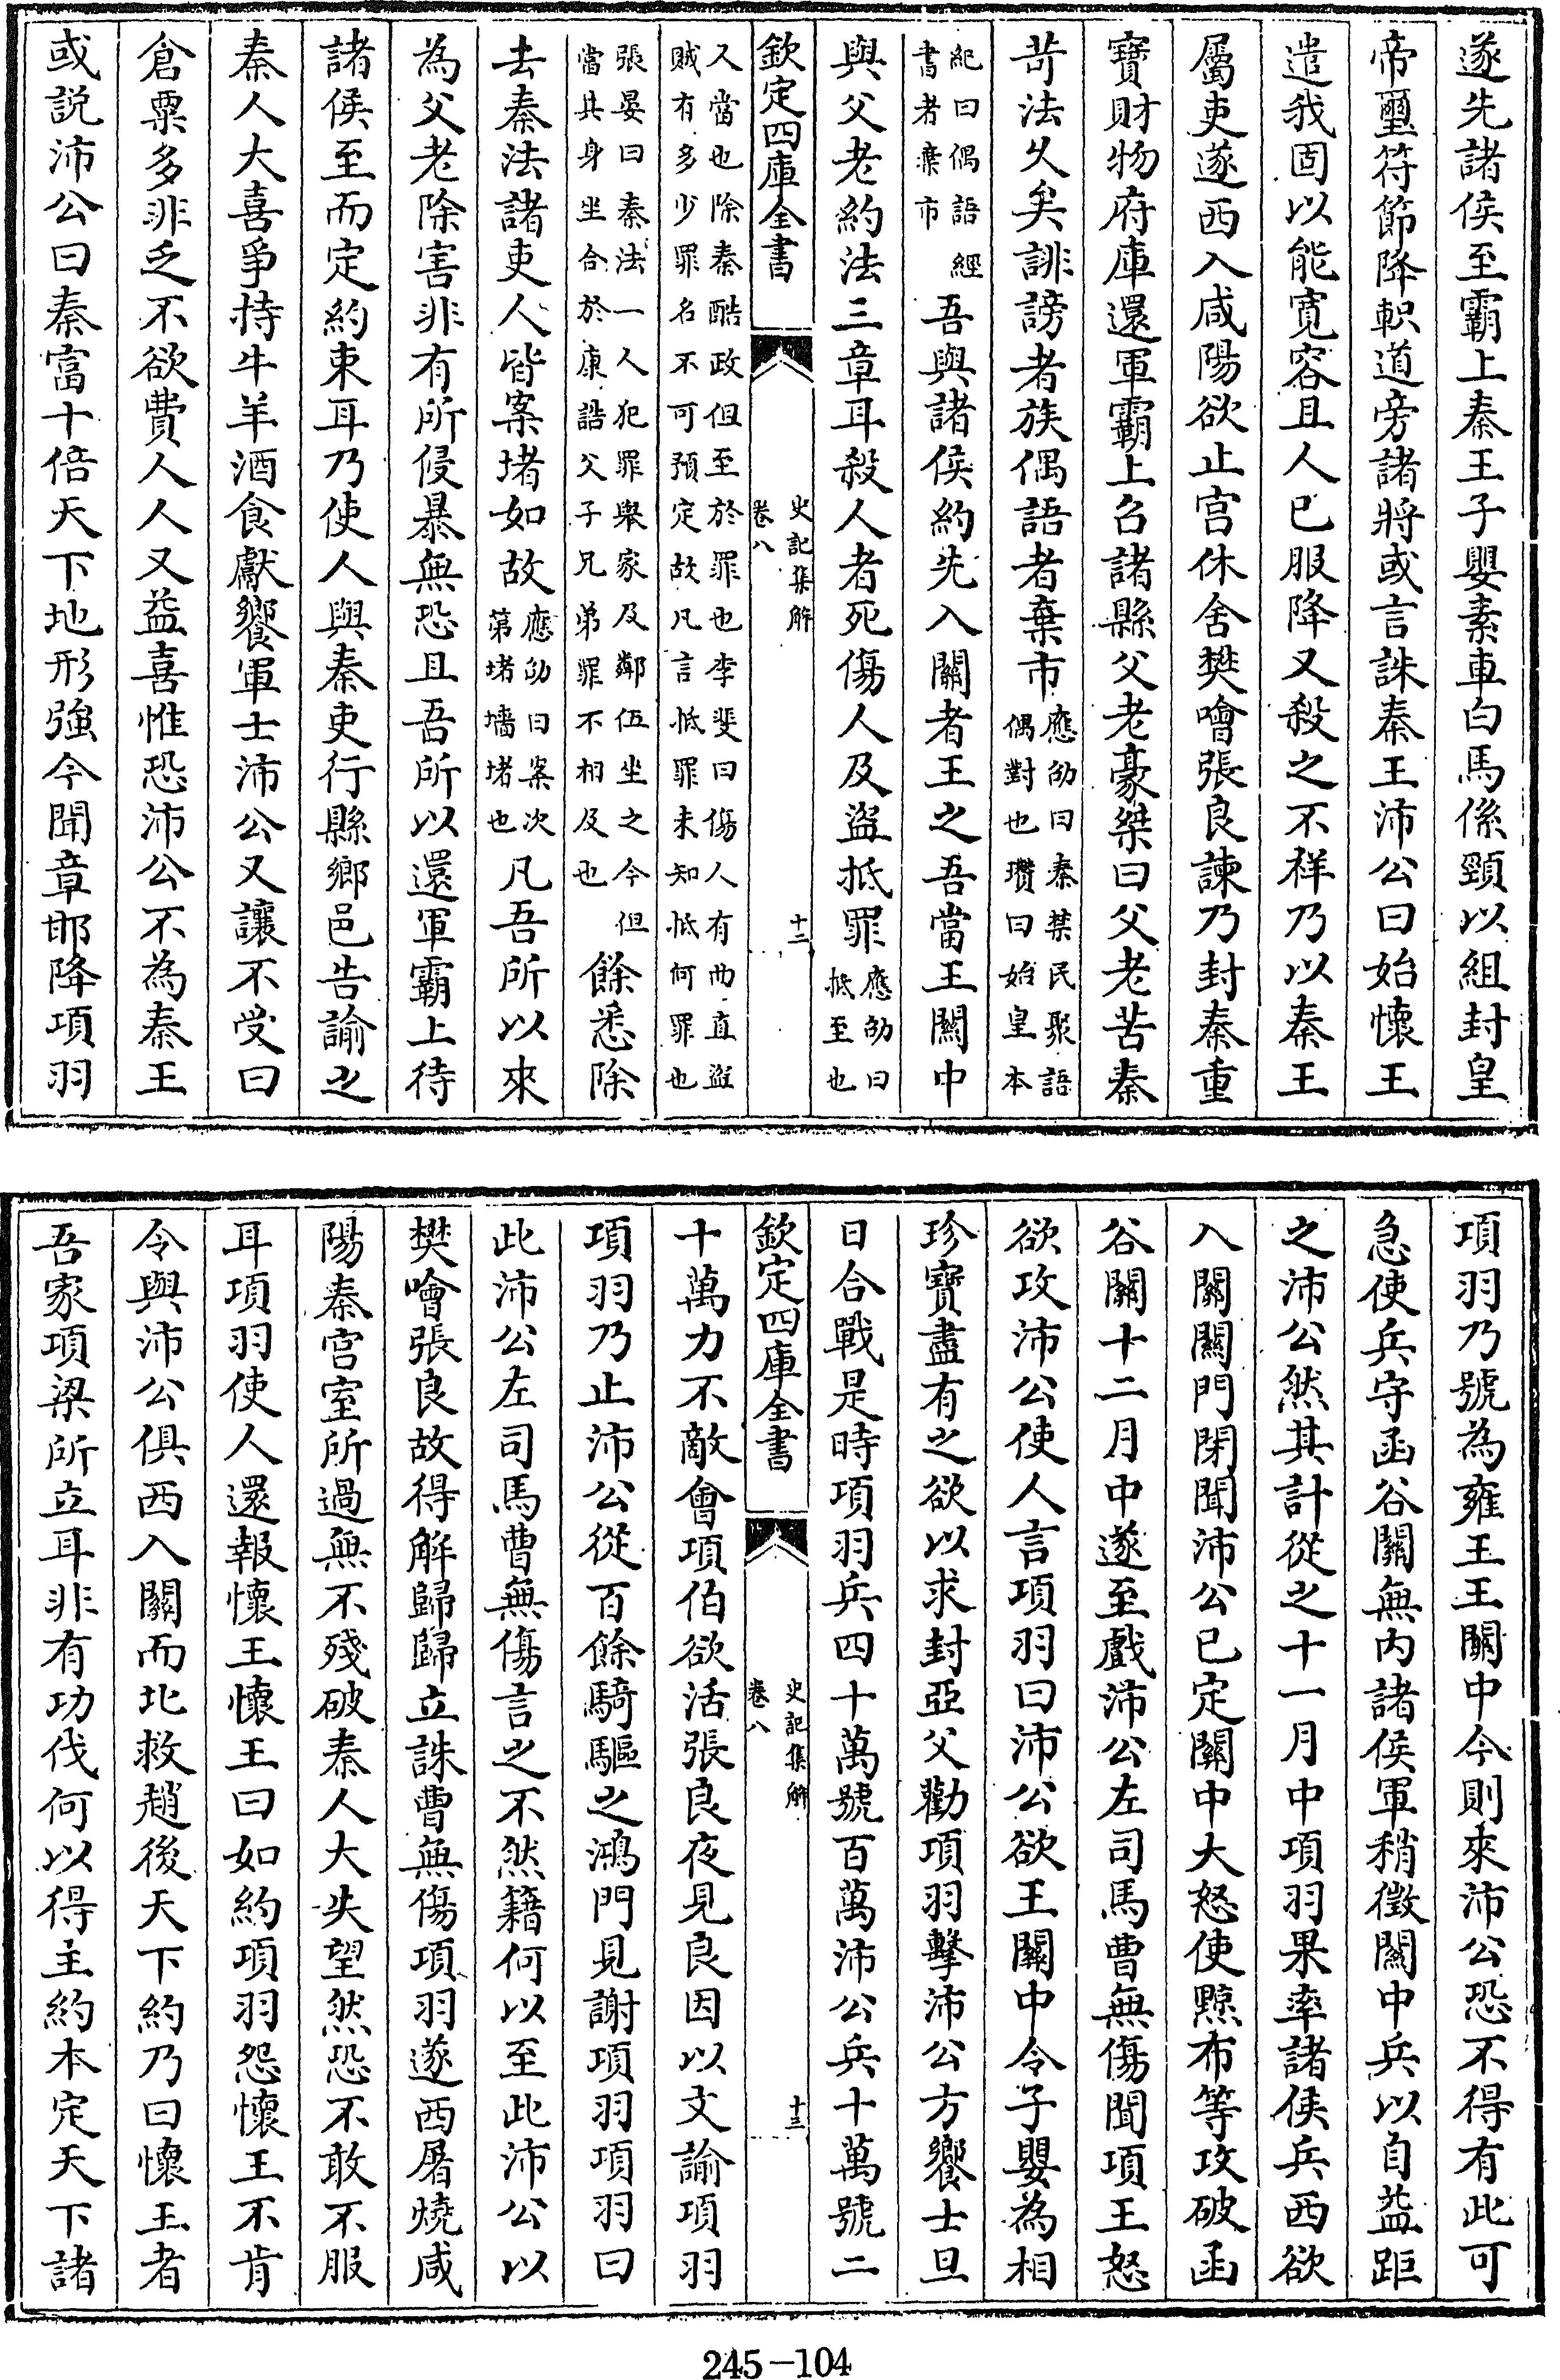 遂先諸侯至霸上秦王子嬰素車白馬係頸以組封皇
帝璽符節降軹道旁諸將或言誅秦王沛公曰始懷王
遣我固以能寛容且人已服降又殺之不祥乃以秦王
屬吏遂西入咸陽欲止宫休舍樊噲張良諫乃封秦重
寶財物府庫還軍霸上召諸縣父老豪桀曰父老苦秦
苛法久矣誹謗者族偶語者棄市應劭曰秦禁民聚語偶對也瓚曰始皇本
紀曰偶語經書者棄市吾與諸侯約先入關者王之吾當王關中
與父老約法三章耳殺人者死傷人及盜抵罪應劭曰抵至也
欽定四庫全書 史記集解 卷八 十二
又當也除秦酷政但至於罪也李斐曰傷人有曲直盜賊有多少罪名不可預定故凡言抵罪未知抵何罪也
張晏曰秦法一人犯罪舉家及鄰伍坐之今但當其身坐合於康誥父子兄弟罪不相及也餘悉除
去秦法諸吏人皆案堵如故應劭曰案次第堵墻堵也凡吾所以來
為父老除害非有所侵暴無恐且吾所以還軍霸上待
諸侯至而定約束耳乃使人與秦吏行縣鄉邑告諭之
秦人大喜爭持牛羊酒食獻饗軍士沛公又讓不受曰
倉粟多非乏不欲費人人又益喜惟恐沛公不為秦王
或説沛公曰秦富十倍天下地形強今聞章邯降項羽
項羽乃號為雍王王關中今則來沛公恐不得有此可
急使兵守函谷關無内諸侯軍稍徴關中兵以自益距
之沛公然其計從之十一月中項羽果率諸侯兵西欲
入關關門閉聞沛公已定關中大怒使黥布等攻破函
谷關十二月中遂至戲沛公左司馬曹無傷聞項王怒
欲攻沛公使人言項羽曰沛公欲王關中令子嬰為相
珍寶盡有之欲以求封亞父勸項羽擊沛公方饗士旦
日合戰是時項羽兵四十萬號百萬沛公兵十萬號二
欽定四庫全書 史記集解 卷八 十三
十萬力不敵會項伯欲活張良夜見良因以文諭項羽
項羽乃止沛公從百餘騎驅之鴻門見謝項羽項羽曰
此沛公左司馬曹無傷言之不然籍何以至此沛公以
樊噲張良故得解歸歸立誅曹無傷項羽遂西屠燒咸
陽秦宫室所過無不殘破秦人大失望然恐不敢不服
耳項羽使人還報懷王懷王曰如約項羽怨懷王不肯
令與沛公俱西入關而北救趙後天下約乃曰懷王者
吾家項梁所立耳非有功伐何以得主約本定天下諸
245-104